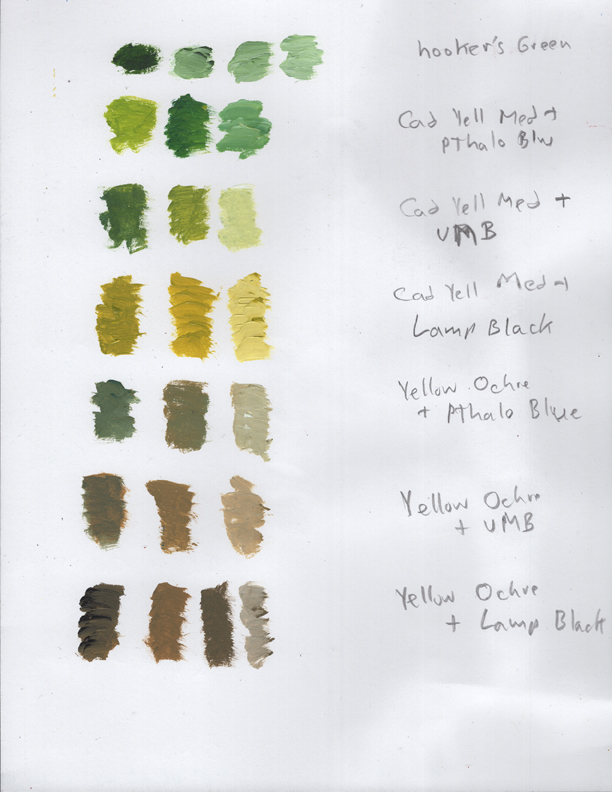 hooker's Green
Cad Yell Med +
pthalo Blu
Cad Yell Med +
UMB
Cad Yell Med +
Lamp Black
Yellow Ochre
+ Pthalo Blue
Yellow Ochre
+ UMB
Yellow Ochre
+ Lamp Black